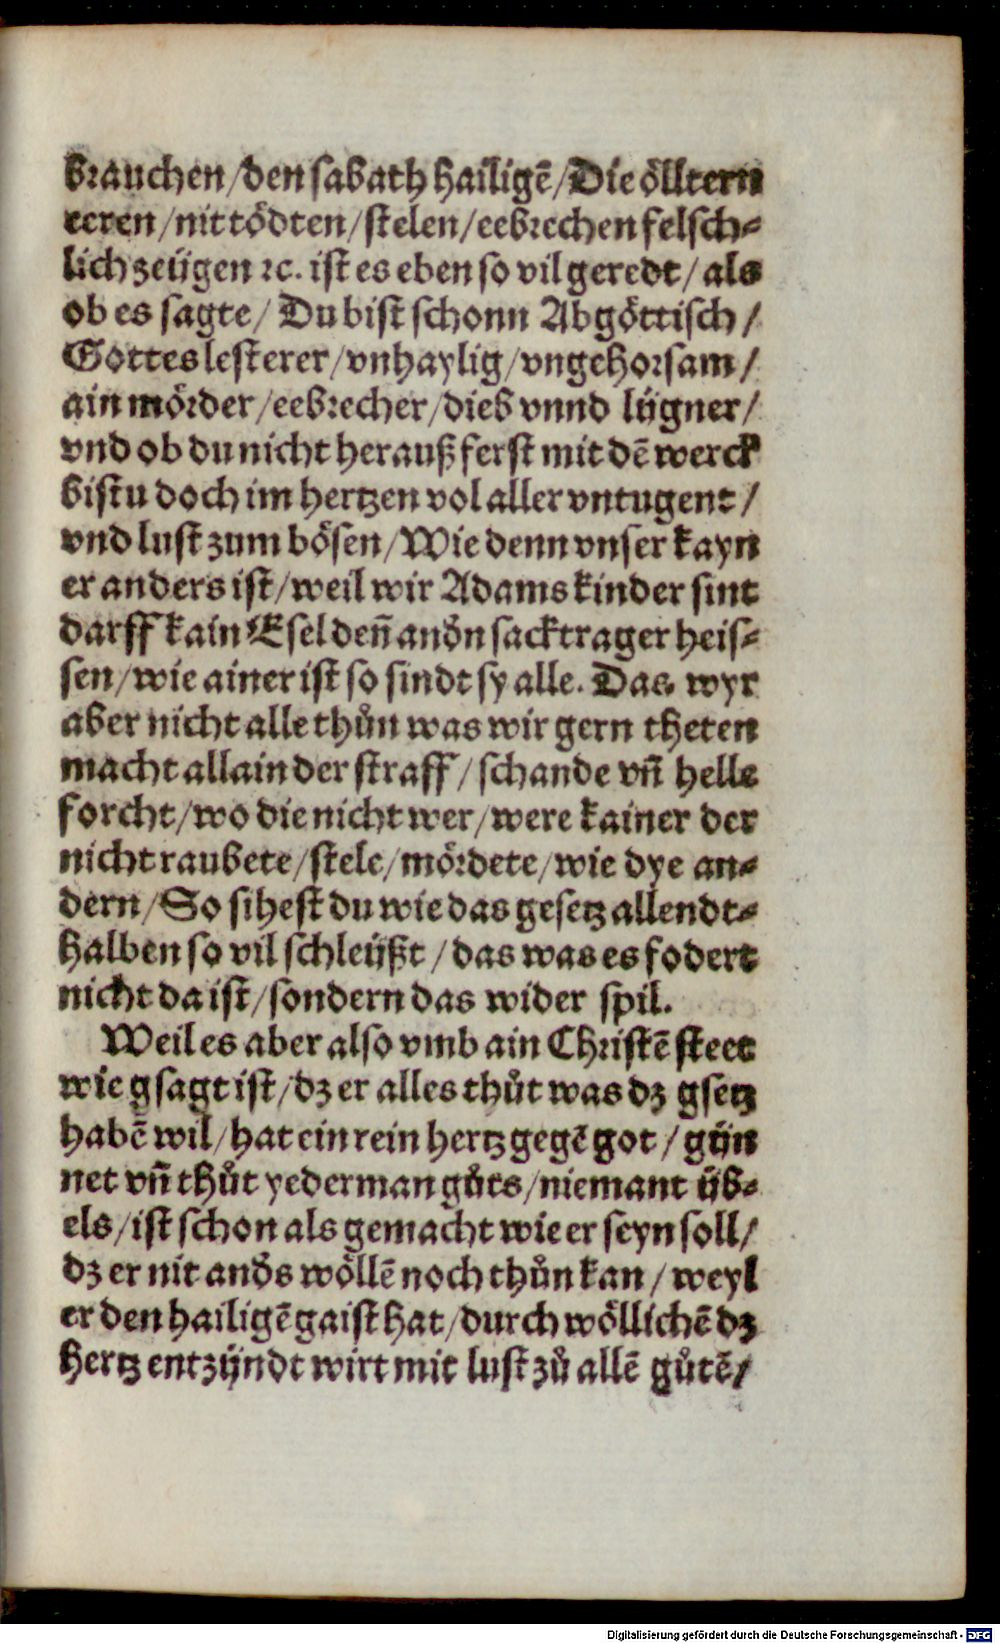 brauchen/den sabath hailigē/Die ölltern
eeren/nit tödten/stelen/eebrechen felsch⸗
lich zeügen ꝛc. ist es eben so vil geredt/ als
ob es sagte/ Du bist schonn Abgöttisch/
Gotteslesterer/vnhaylig/vngehorsam/
ain mörder/eebrecher/dieb vnnd lügner/
vnd ob du nicht herauß ferst mit dē werck
bistu doch im hertzen vol aller vntugent/
vnd lust zum bösen/Wie denn vnser kayn
er anders ist/weil wir Adams kinder sint
darff kain Esel deñ andn̄ sacktrager heis⸗
sen/wie ainer ist so sindt sy alle. Das wyr
aber nicht alle thůn was wir gern theten
macht allain der straff/ schande vñ helle
forcht/wo die nicht wer/were kainer der
nicht raubete/stele/mördete/wie dye an⸗
dern/So sihest du wie das gesetz allendt⸗
halben so vil schleüßt/das was es fodert
nicht da ist/sondern das wider spil.
Weil es aber also vmb ain Christē steet
wie gsagt ist/dz er alles thůt was dz gsetz
habē wil/hat ein rein hertz gegē got/gün
net vñ thůt yederman gůts/niemant üb⸗
els/ist schon als gemacht wie er seyn soll/
dz er nit anđs wöllē noch thůn kan/weyl
er den hailigē gaist hat/durch wöllichē dz
hertz entzündt wirt mit lust zů allē gůtē/
Digitalisierung gefördert durch die Deutsche Forschungsgemeinschaft - DFG